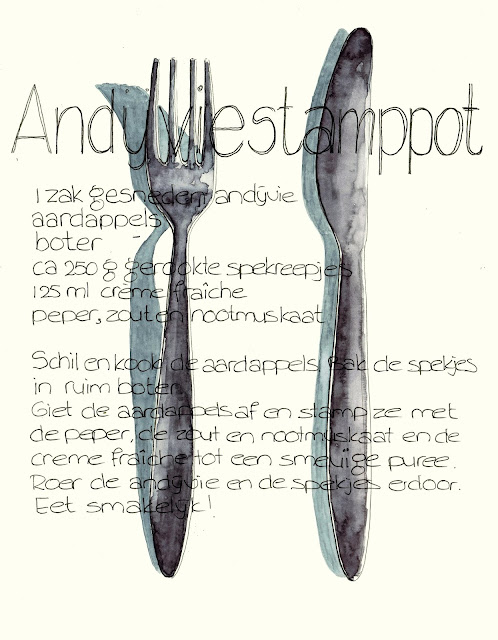 Andijviestamppot
1 zak gesneden andijvie
aardappels
boter
ca 250 g gerookte spekreepjes
125 ml crème fraîche
peper, zout en nootmuskaat
Schil en kook de aardappels, bak de spekjes
in ruim boter.
Giet de aardappels af en stamp ze met
de peper, de zout en nootmuskaat en de
creme fraîche tot een smeuïge puree.
Roer de andijvie en de spekjes erdoor.
Eet smakelijk!